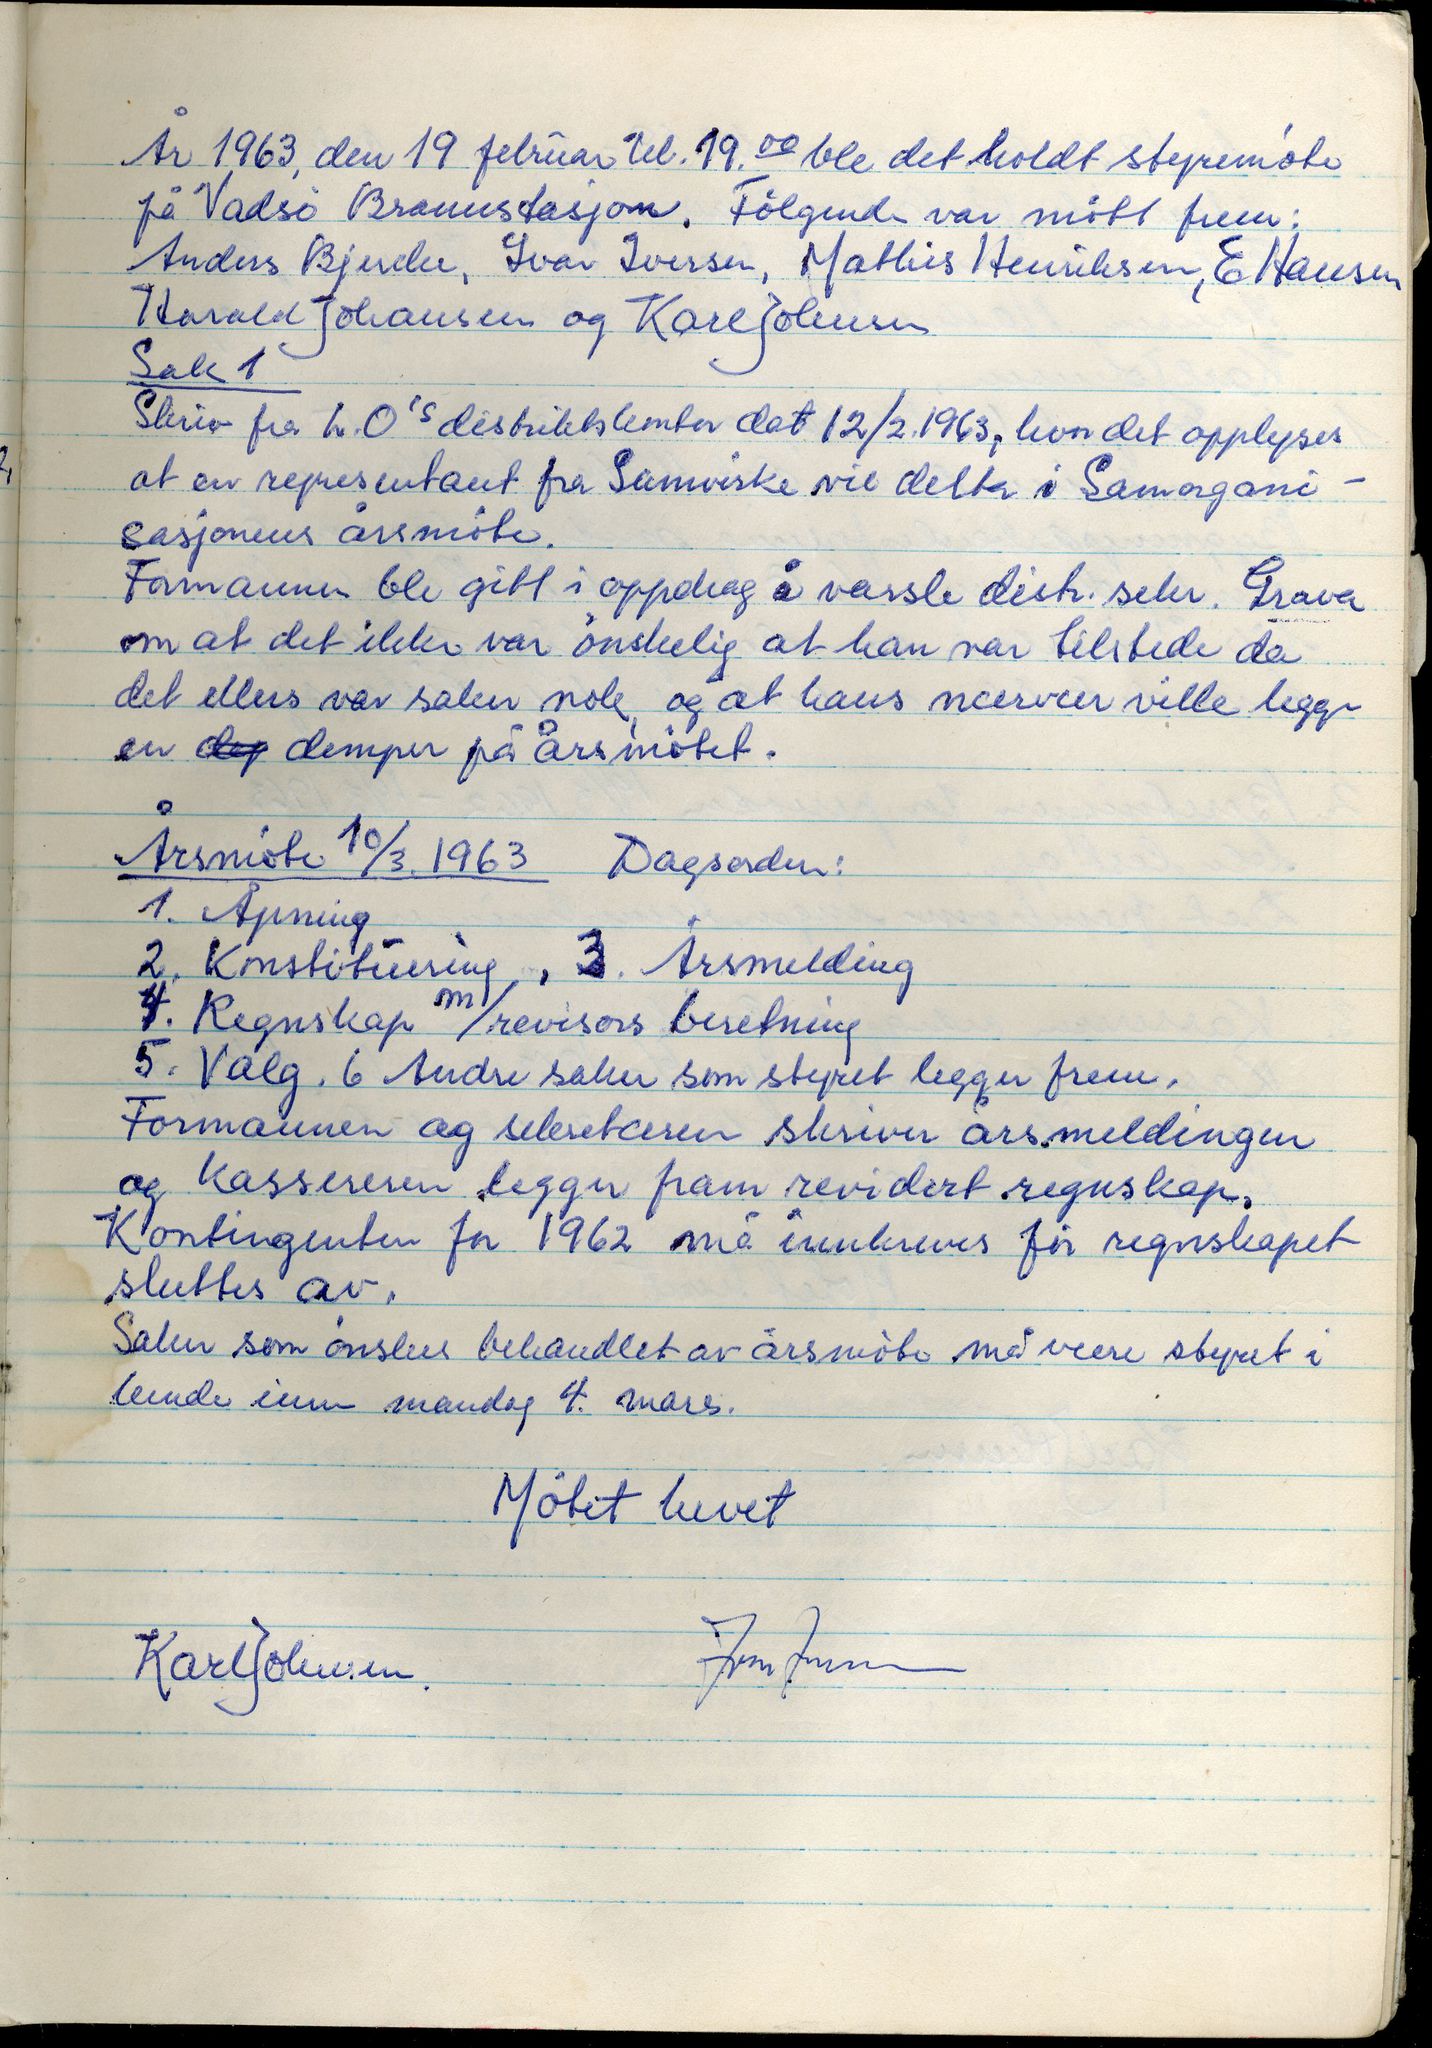 År 1963, den 19 februar kl. 19.00 ble det holdt styremöte
på Vadsö Brannstasjon. Fölgende var mött frem:
Anders Bjerde, Ivar Iversen, Mathis Henriksen, E Hansen
Harald Johansen og Karl Johnsen
Sak 1
Skriv fra L.O's distriktskontor dat 12/2.1963, hvor det opplyses
at en representant fra Samvirke vil delta i Samorgani-
sasjonens årsmöte.
Formannen ble gitt i oppdrag å varsle distr. sekr. Grava
om at det ikke var önskelig at han var tilstede da
det ellers var saker nok, og at hans nærvær ville legge
en dep demper på årsmötet.
Årsmöte 10/3.1963 Dagsorden:
1. Åpning
2. Konstituering, 3. Årsmelding
4. Regnskap m/revisors beretning
5. Valg. 6 Andre saker som styret legger frem.
Formannen og sekretæren skriver årsmeldingen
og Kassereren legger fram revidert regnskap.
Kontingenten for 1962 må innkreves för regnskapet
sluttes av.
Saker som önskes behandlet av årsmöte må være styret i
hende innen mandag 4. mars.
Mötet hevet
Karl Johnsen.
Ivar Iversen